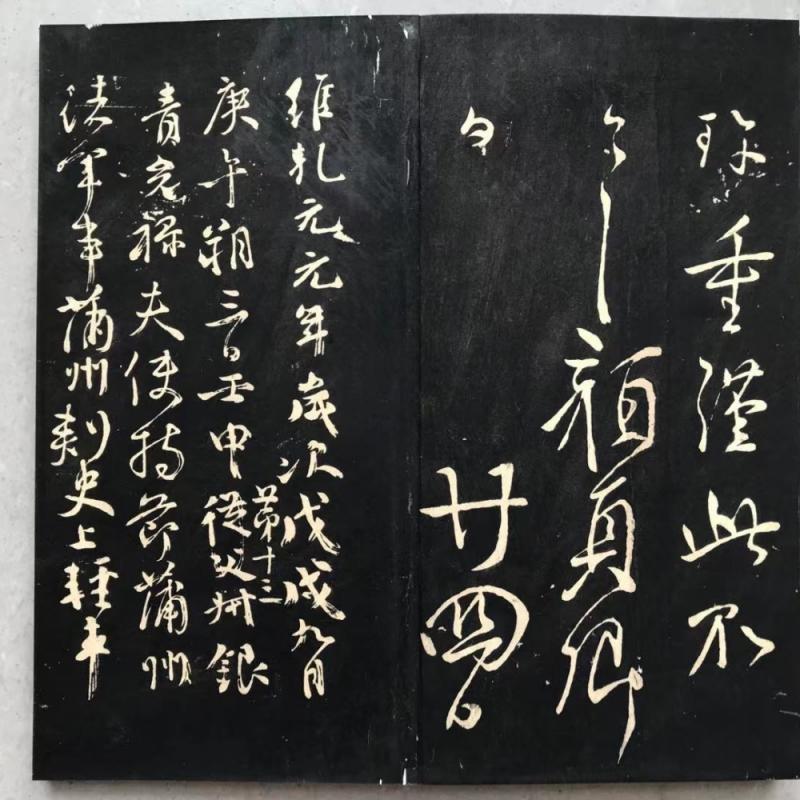 珎重謹此不
〻顔真卿
白廿四日
維乾元元年歲次戊戌九月
第十三
庚午朔三日壬申從父銀
青光祿夫使持節蒲州
諸軍事蒲州刺史上輕車